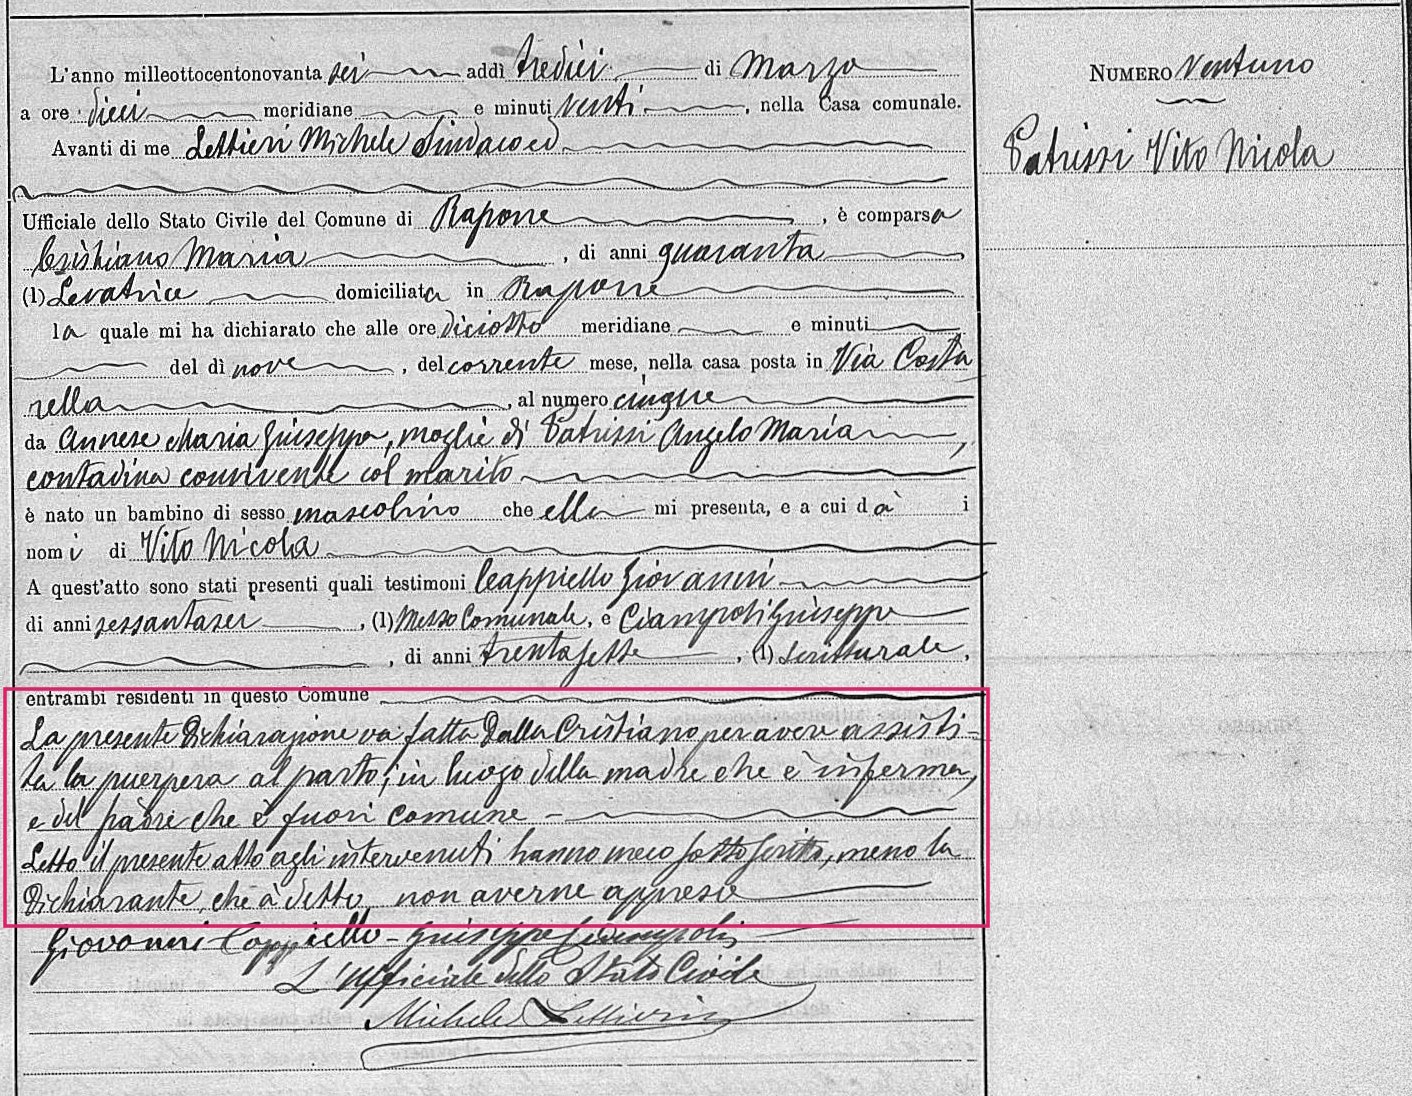 L'anno milleottocentonovanta sei addì tredici di Marzo
a ore dieci meridiane e minuti venti, nella Casa comunale.
Avanti di me Lettieri Michele Sindaco ed
Ufficiale dello Stato Civile del Comune di Rapone, è comparsa
Cristiano Maria, di anni quaranta
(1) Levatrice domiciliata in Rapone
la quale mi ha dichiarato che alle ore diciotto meridiane e minuti
del dì nove, del corrente mese, nella casa posta in Via Costa
rella, al numero cinque
da Annese Maria Giuseppa, moglie di Patrissi Angelo Maria,
contadina convivente col marito
è nato un bambino di sesso mascolino che ella mi presenta, e a cui dà i
nomi di Vito Nicola
A quest'atto sono stati presenti quali testimoni Cappiello Giovanni
di anni sessantasei, (1) Messo Comunale, e Ciampoli Giuseppe
, di anni trentasette, (1) Scritturale,
entrambi residenti in questo Comune
La presente dichiarazione va fatta dalla Cristiano per avere assisti-
ta la puerpera al parto, in luogo della madre che è inferma,
e del padre che è fuori comune -
Letto il presente atto agli intervenuti hanno meco sottoscritto, meno la
dichiarante, che à detto non averne appreso
Giovanni Cappiello - Giuseppe Ciampoli
L'Ufficiale dello Stato Civile
Michele Lettieri
Numero Ventuno
Patrissi Vito Nicola